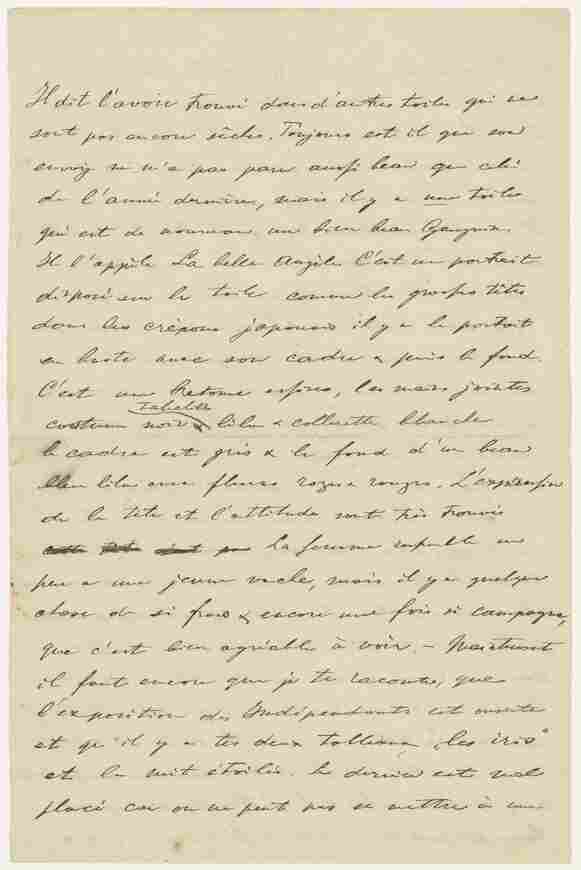 Il dit l'avoir trouvé dans d'autres toiles qui ne
sont pas encore sèches. Toujours est il que son
envoy ne m'a pas paru aussi beau que celui
de l'année dernière, mais il y a une toile
qui est de nouveau un bien beau Gauguin.
Il l'appelle La belle Angèle. C'est un portrait
disposé sur la toile comme les grosses têtes
dans les crépons japonais il y a le portrait
en buste avec son cadre & puis le fond.
C'est une Bretonne assise, les mains jointes
tablette
costume noir & lilas & collerette blanche
le cadre est gris & le fond d'un beau
bleu lilas avec fleurs roses & rouges. L'expression
de la tête et l'attitude sont très trouvés
La femme ressemble un
peu a une jeune vache, mais il y a quelque
chose de si frais & encore une fois si campagne,
que c'est bien agréable à voir. – Maintenant
il faut encore que je te raconte, que
l'exposition des Indépendants est ouverte
et qu'il y a tes deux tableaux „les iris"
et la nuit étoilée. Le dernier est mal
placé car on ne peut pas se mettre à une